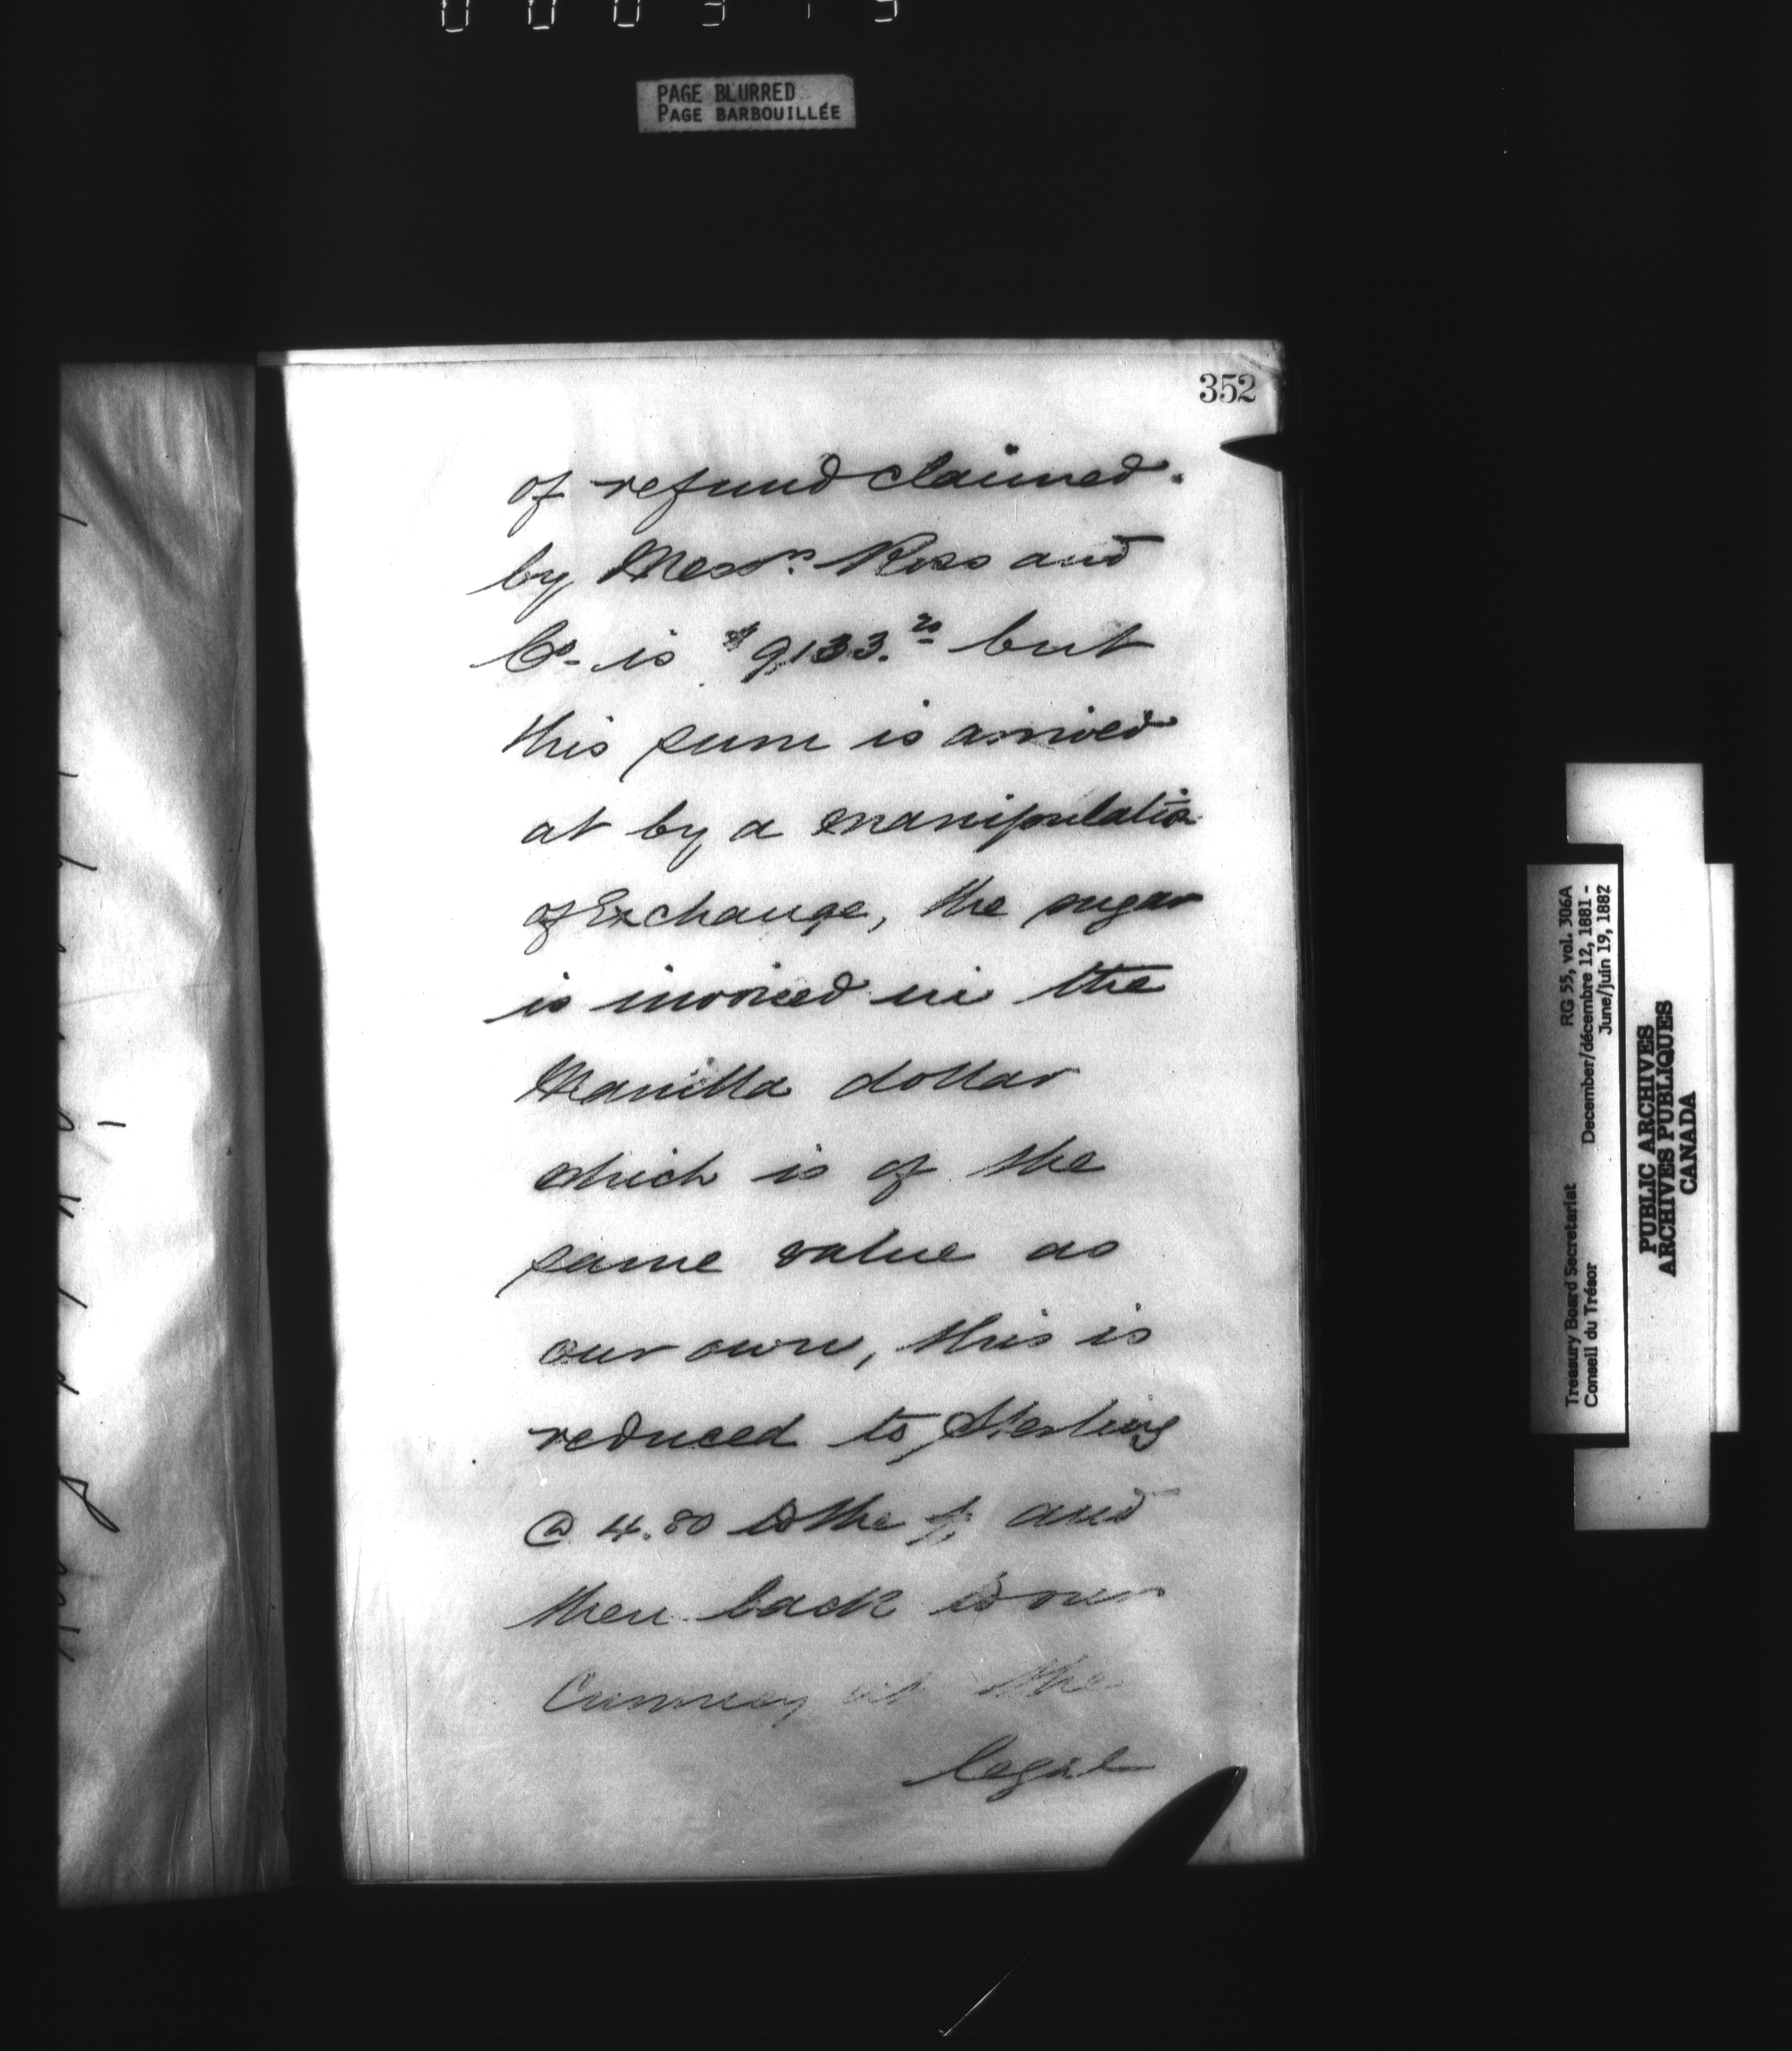 PAGE BLURRED
PAGE BARBOUILLÉE
352
of refund claimed.
by Messrs. Ross and
Co. is $9133.20 but
this sum is arrived
at by a manipulatio
of Exchange, the sugar
is invoiced in the
Manilla dollar
which is of the
same value as
our own, this is
reduced to Sterling
@ 4.80 to the £, and
then back to our
Currency at the
legal
Treasury Board Secretariat RG 55, vol. 306A
Conseil du Trésor December/décembre 12, 1881 -
June/juin 19, 1882
PUBLIC ARCHIVES
ARCHIVES PUBLIQUES
CANADA